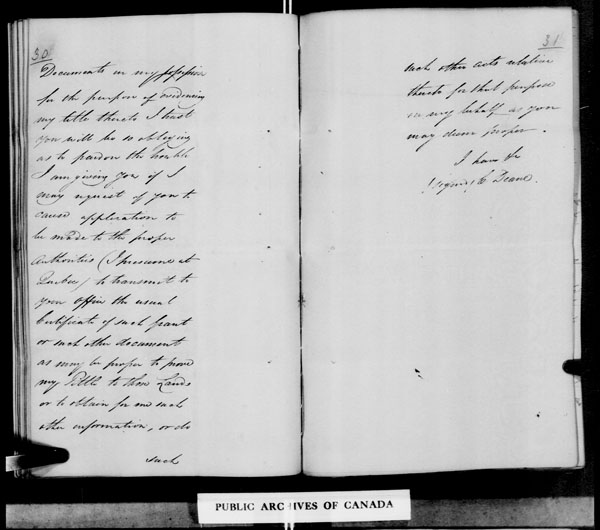 30
Documents in my possession
for the purpose of evidencing
my title thereto I trust
you will be so obliging
as to pardon the trouble
I am giving you if I
may request of you to
cause application to
be made to the proper
Authorities (I presume at
Quebec) to transmit to
your office the usual
Certificate of such Grant
or such other document
as may be proper to prove
my Title to those Lands
or to obtain for me such
other information, or do
such
31
such other acts relative
thereto for that purpose
in my behalf as you
may deem proper.
I have &c
(signed) C Deane.
PUBLIC ARCHIVES OF CANADA